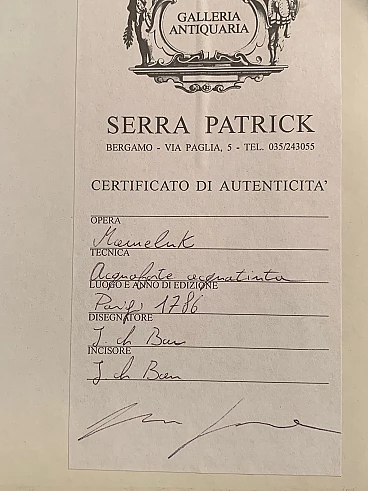 GALLERIA
ANTIQUARIA
SERRA PATRICK
BERGAMO - VIA PAGLIA, 5 - TEL. 035/243055
CERTIFICATO DI AUTENTICITA'
OPERA
Mameluk
TECNICA
Acquaforte acquatinta
LUOGO E ANNO DI EDIZIONE
Parigi 1786
DISEGNATORE
INCISORE